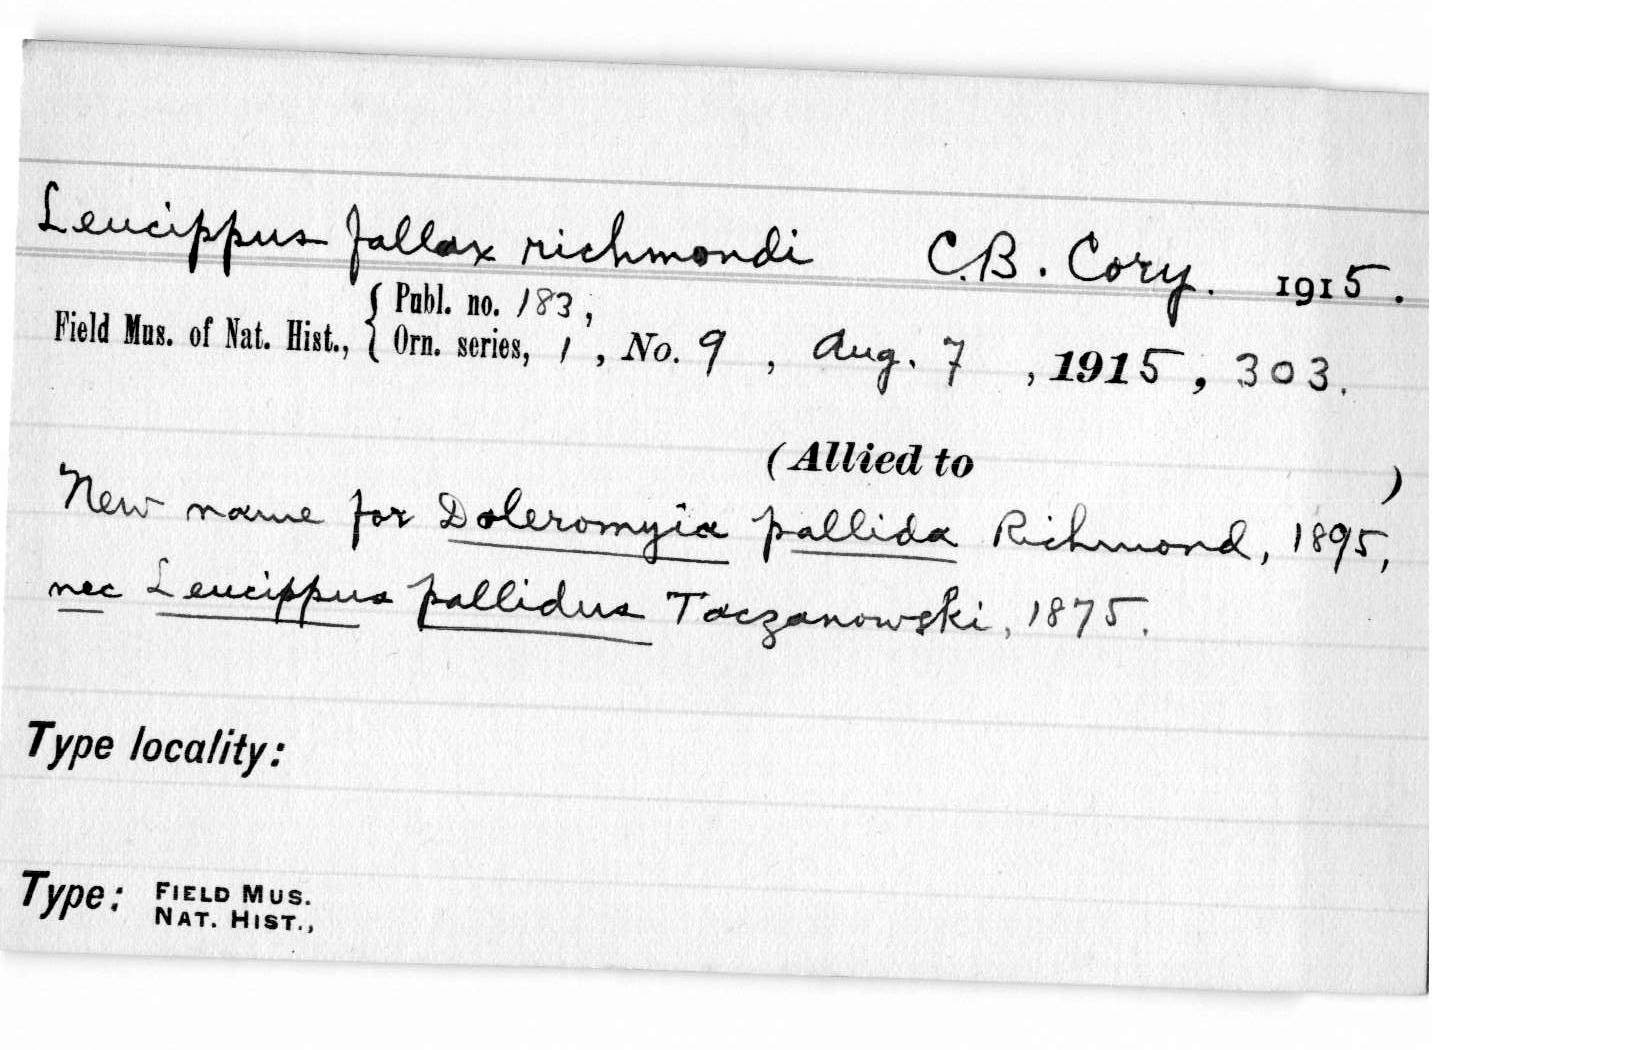 Leucippus fallax richmondi C.B. Cory. 1915.
Field Mus. of Nat. Hist., { Publ. no. 183,
Orn. series, 1, No. 9, Aug. 7, 1915, 303.
(Allied to )
New name for Doleromyia pallida Richmond, 1895,
nec Leucippus pallidus Taczanowski, 1875.
Type locality:
Type: FIELD MUS.
NAT. HIST.,